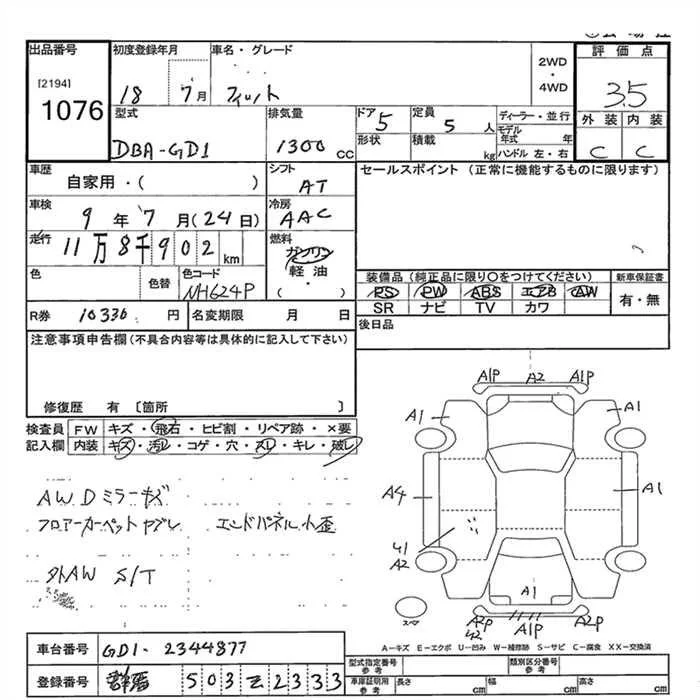 出品番号 初度登録年月 車名・グレード 2WD・4WD 評価点
[2194]
1076 18 7月 フィット 3.5
型式 排気量 ドア 5 定員 5 人 ディーラー・並行 外装 内装
DBA-GD1 1300 CC 形状 積載 kg モデル年式 年 ハンドル 左・右 C C
車歴 シフト セールスポイント (正常に機能するものに限ります)
自家用・( ) AT
車検 冷房
9年7月(24日) AAC
走行 燃料
11万8千902km ガソリン
軽油・( )
色 色替 色コード 装備品(純正品に限り〇をつけてください) 新車保証書
NH624P PS PW ABS エアB AW 有・無
SR ナビ TV カワ
R券 10330 円 名変期限 月 日 後日品
注意事項申告欄(不具合内容等は具体的に記入して下さい)
修復歴 有 〔箇所 〕
検査員 FW キズ・飛石・ヒビ割・リペア跡・×要
記入欄 内装 キズ・汚レ・コゲ・穴・スレ・キレ・破レ
AWDミラーキズ
フロアーカーペットヤブレ エンドパネル小歪
外AW S/T
A1P A2 A1P
A1 A1
A4 A1
U1
A2
A1
スペア A2P A1P A2P
U2
A-キズ E-エクボ U-凹み W-補修跡 S-サビ C-腐食 XX-交換済
車台番号 GD1-2344877
登録番号 503 2333
型式指定番号 参考 類別区分番号 参考
車庫証明記録 参考 長さ cm 幅 cm 高さ cm